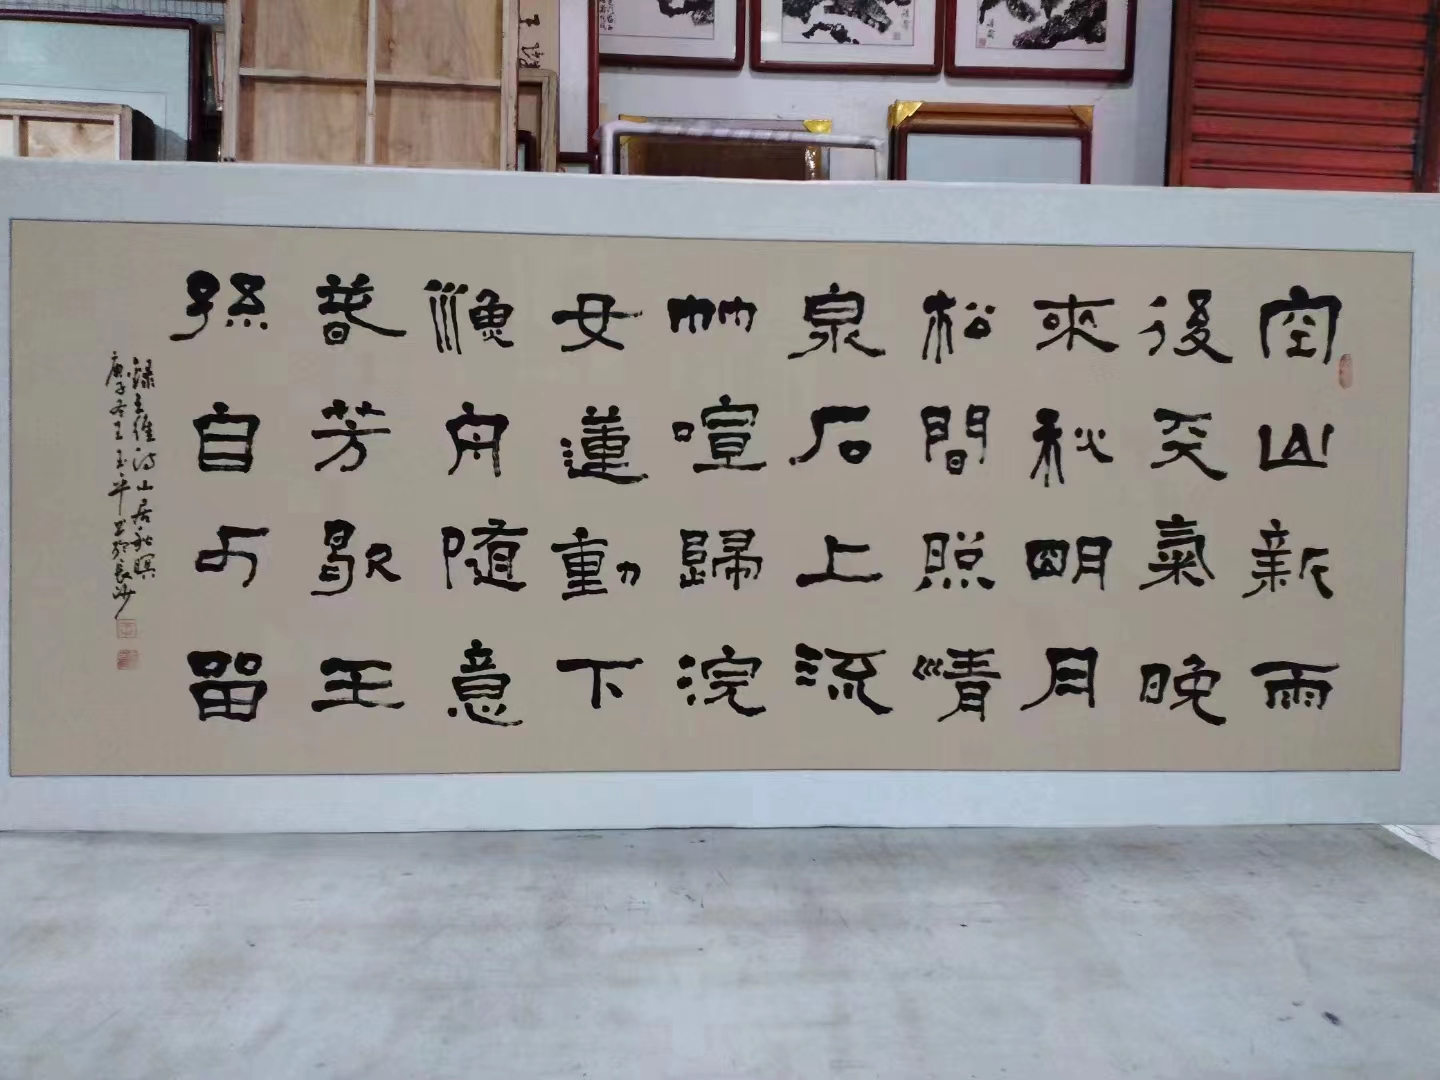 空山新雨
後天氣晚
來秋明月
松間照清
泉石上流
竹喧歸浣
女蓮動下
漁舟隨意
春芳歇王
孫自可留
録王維詩山居秋暝
庚子冬王玉平書於長沙